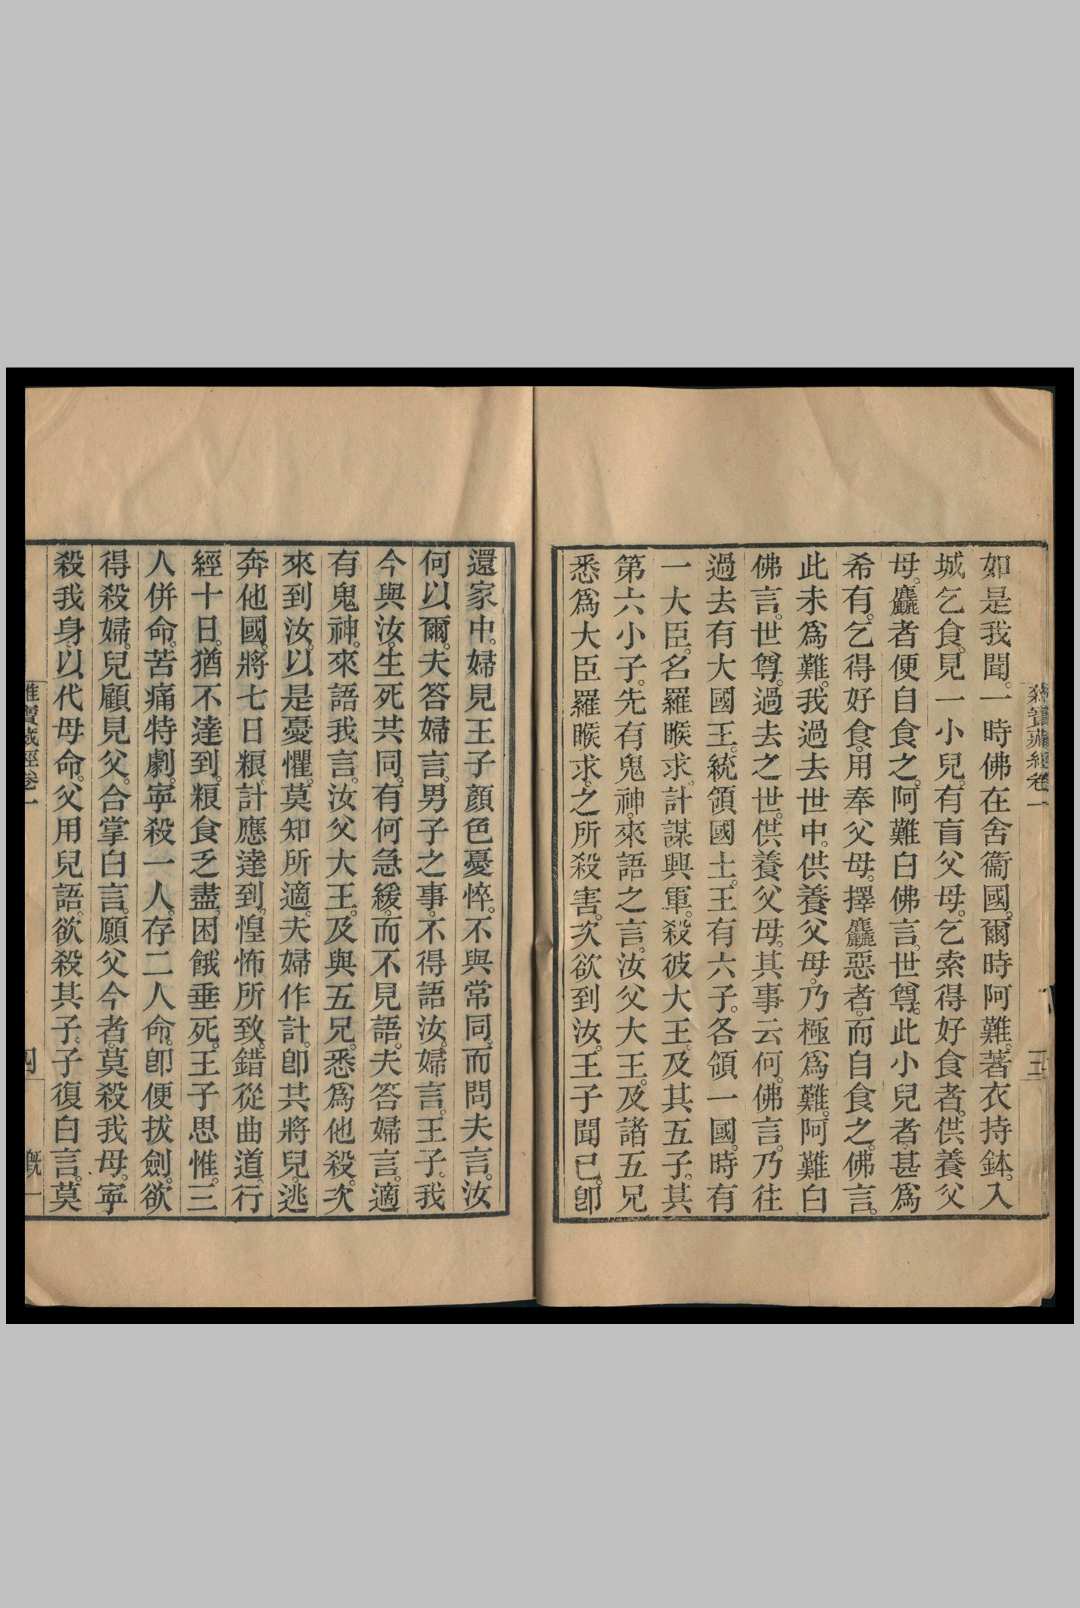 雜寶藏經卷一
三
如是我聞。一時佛在舍衞國。爾時阿難。著衣持鉢。入
城乞食。見一小兒。有盲父母。乞索得好食者。供養父
母。麤者便自食之。阿難白佛言。世尊。此小兒者甚爲
希有。乞得好食。用奉父母。擇麤惡者。而自食之。佛言。
此未爲難。我過去世中。供養父母。乃極爲難。阿難白
佛言。世尊。過去之世。供養父母。其事云何。佛言。乃往
過去有大國王。統領國土。王有六子。各領一國。時有
一大臣。名羅睺求。計謀興軍。殺彼大王。及其五子。其
第六小子。先有鬼神。來語之言。汝父大王。及諸五兄
悉爲大臣羅睺求之所殺害。次欲到汝。王子聞已。卽
還家中。婦見王子顏色憂悴。不與常同。而問夫言。汝
何以爾。夫答婦言。男子之事。不得語汝。婦言。王子。我
今與汝。生死共同。有何急緩。而不見語。夫答婦言。適
有鬼神。來語我言。汝父大王。及與五兄。悉爲他殺。次
來到汝。以是憂懼。莫知所適。夫婦作計。卽共將兒。逃
奔他國。將七日粮。計應達到。惶怖所致。錯從曲道。行
經十日。猶不達到。粮食乏盡。困餓垂死。王子思惟。三
人併命。苦痛特劇。寧殺一人。存二人命。卽便拔劍。欲
得殺婦。兒顧見父。合掌白言。願父今者。莫殺我母。寧
殺我身。以代母命。父用兒語。欲殺其子。子復白言。莫
雜寶藏經卷一
四
槪一